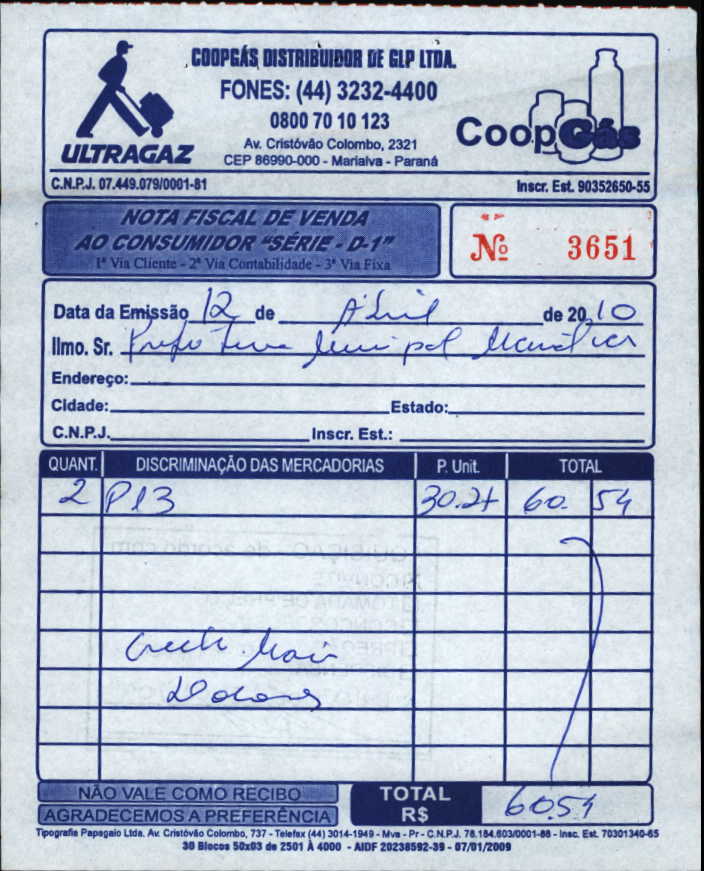 COOPGÁS DISTRIBUIDOR DE GLP LTDA.
FONES: (44) 3232-4400
0800 70 10 123
Av. Cristóvão Colombo, 2321
CEP 86990-000 - Marialva - Paraná
ULTRAGAZ
CoopGás
C.N.P.J. 07.449.079/0001-81
Inscr. Est. 90352650-55
NOTA FISCAL DE VENDA
AO CONSUMIDOR "SÉRIE - D-1"
1ª Via Cliente - 2ª Via Contabilidade - 3ª Via Fixa
Nº 3651
Data da Emissão 12 de Abril de 2010
Ilmo. Sr. Prefeitura Municipal
Endereço:
Cidade: Estado:
C.N.P.J. Inscr. Est.:
QUANT. DISCRIMINAÇÃO DAS MERCADORIAS P. Unit. TOTAL
2 P13 30.27 60. 54
Creche
NÃO VALE COMO RECIBO
AGRADECEMOS A PREFERÊNCIA
TOTAL R$ 60.54
Tipografia Papagaio Ltda. Av. Cristóvão Colombo, 737 - Telefax (44) 3014-1949 - Mva - Pr - C.N.P.J. 78.184.603/0001-88 - Insc. Est. 70301340-65
30 Blocos 50x03 de 2501 À 4000 - AIDF 20238592-39 - 07/01/2009